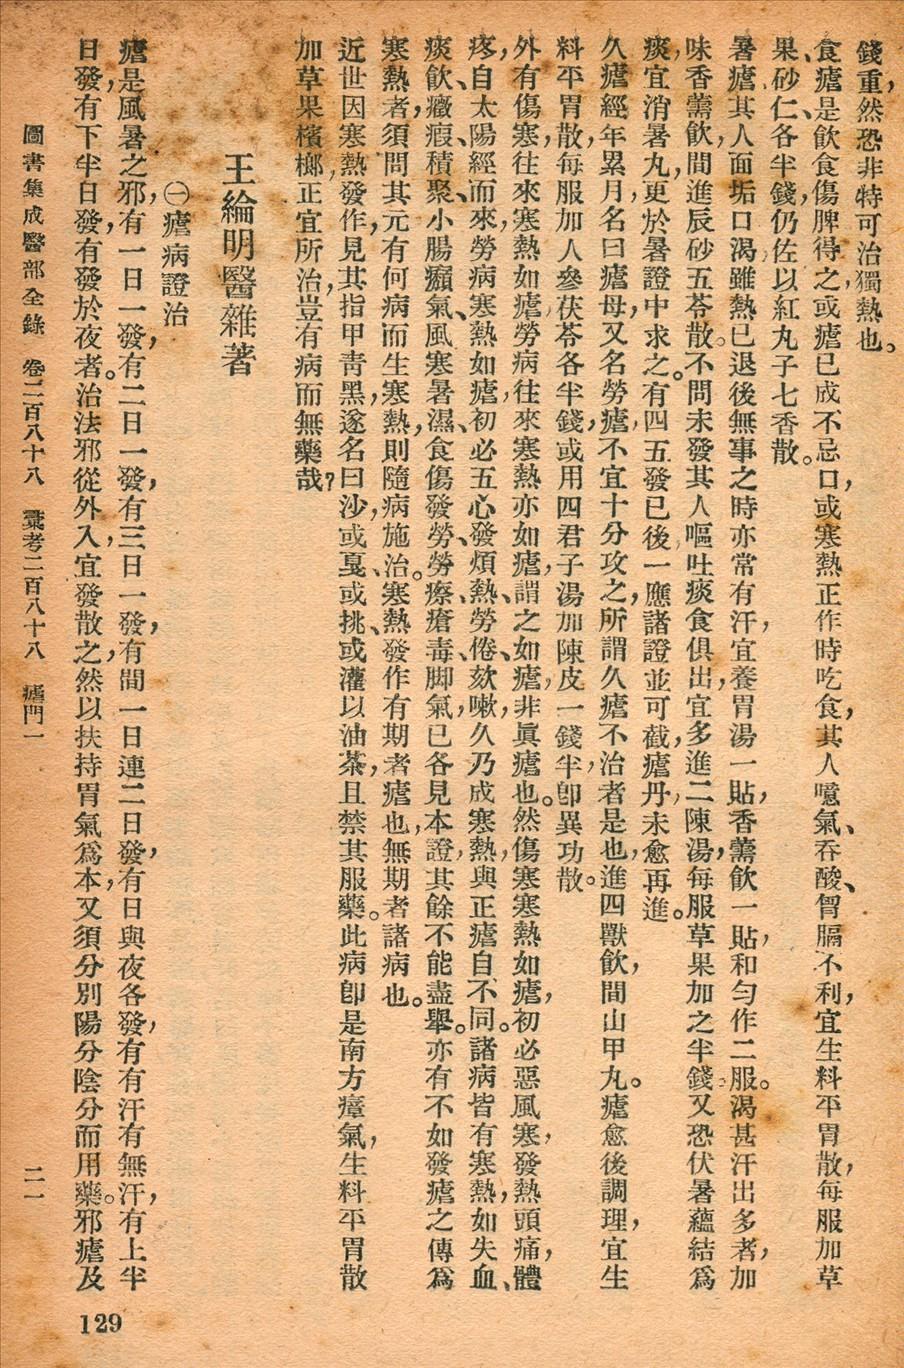 錢重，然恐非特可治獨熱也。
食瘧，是飲食傷脾得之，或瘧已成不忌口，或寒熱正作時吃食，其人噫氣、吞酸、胷膈不利，宜生料平胃散，每服加草
果、砂仁、各半錢，仍佐以紅丸子七香散。
暑瘧其人面垢口渴，雖熱已退後無事之時亦常有汗，宜養胃湯一貼，香薷飲一貼，和勻作二服。渴甚汗出多者，加
味香薷飲，間進辰砂五苓散。不問未發其人嘔吐痰食俱出，宜多進二陳湯，每服草果加之半錢。又恐伏暑蘊結爲
痰，宜消暑丸，更於暑證中求之。有四五發已後，一應諸證並可截瘧丹，未愈再進。
久瘧經年累月，名曰瘧母，又名勞瘧，不宜十分攻之，所謂久瘧不治者是也，進四獸飲，間山甲丸。瘧愈後調理，宜生
料平胃散，每服加人參茯苓各半錢，或用四君子湯加陳皮一錢半，卽異功散。
外有傷寒，往來寒熱如瘧，勞病往來寒熱亦如瘧，謂之如瘧，非眞瘧也。然傷寒寒熱如瘧，初必惡風寒，發熱頭痛，體
疼，自太陽經而來，勞病寒熱如瘧，初必五心發煩熱、勞倦、欬嗽，久乃成寒熱，與正瘧自不同。諸病皆有寒熱，如失血、
痰飲、癥瘕、積聚、小腸癩氣、風寒暑濕、食傷發勞、勞瘵、瘡毒、脚氣，已各見本證，其餘不能盡舉。亦有不如發瘧之傳爲
寒熱者，須問其元有何病而生寒熱，則隨病施治。寒熱發作有期者瘧也，無期者諸病也。
近世因寒熱發作，見其指甲靑黑，遂名曰沙，或戛、或挑、或灌以油茶，且禁其服藥。此病卽是南方瘴氣，生料平胃散
加草果檳榔，正宜所治，豈有病而無藥哉？
王綸明醫雜著
㊀瘧病證治
瘧是風暑之邪，有一日一發，有二日一發，有三日一發，有間一日連二日發，有日與夜各發，有有汗有無汗，有上半
日發，有下半日發，有發於夜者。治法邪從外入，宜發散之，然以扶持胃氣爲本，又須分別陽分陰分而用藥。邪瘧及
圖書集成醫部全錄　卷二百八十八　彙考二百八十八　瘧門一
二一
129